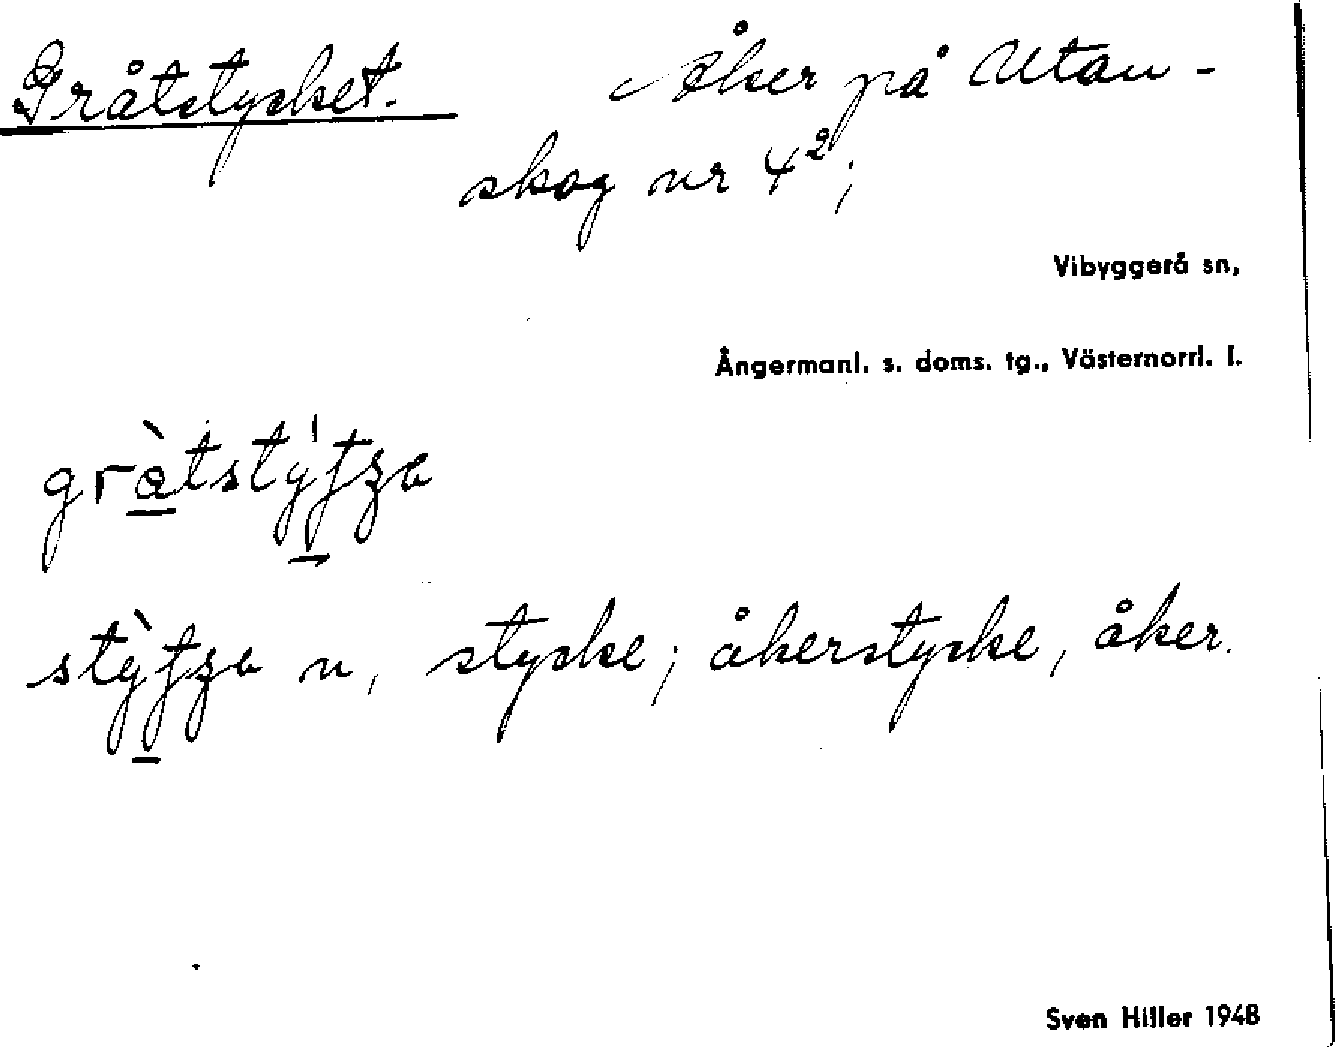 Gråtstycket. Åker på Utan-
skog nr 4²;
Vibyggerå sn,
Ångermanl. s. doms. tg., Västernorrl. l.
stycke; åkerstycke, åker.
Sven Hiller 1948